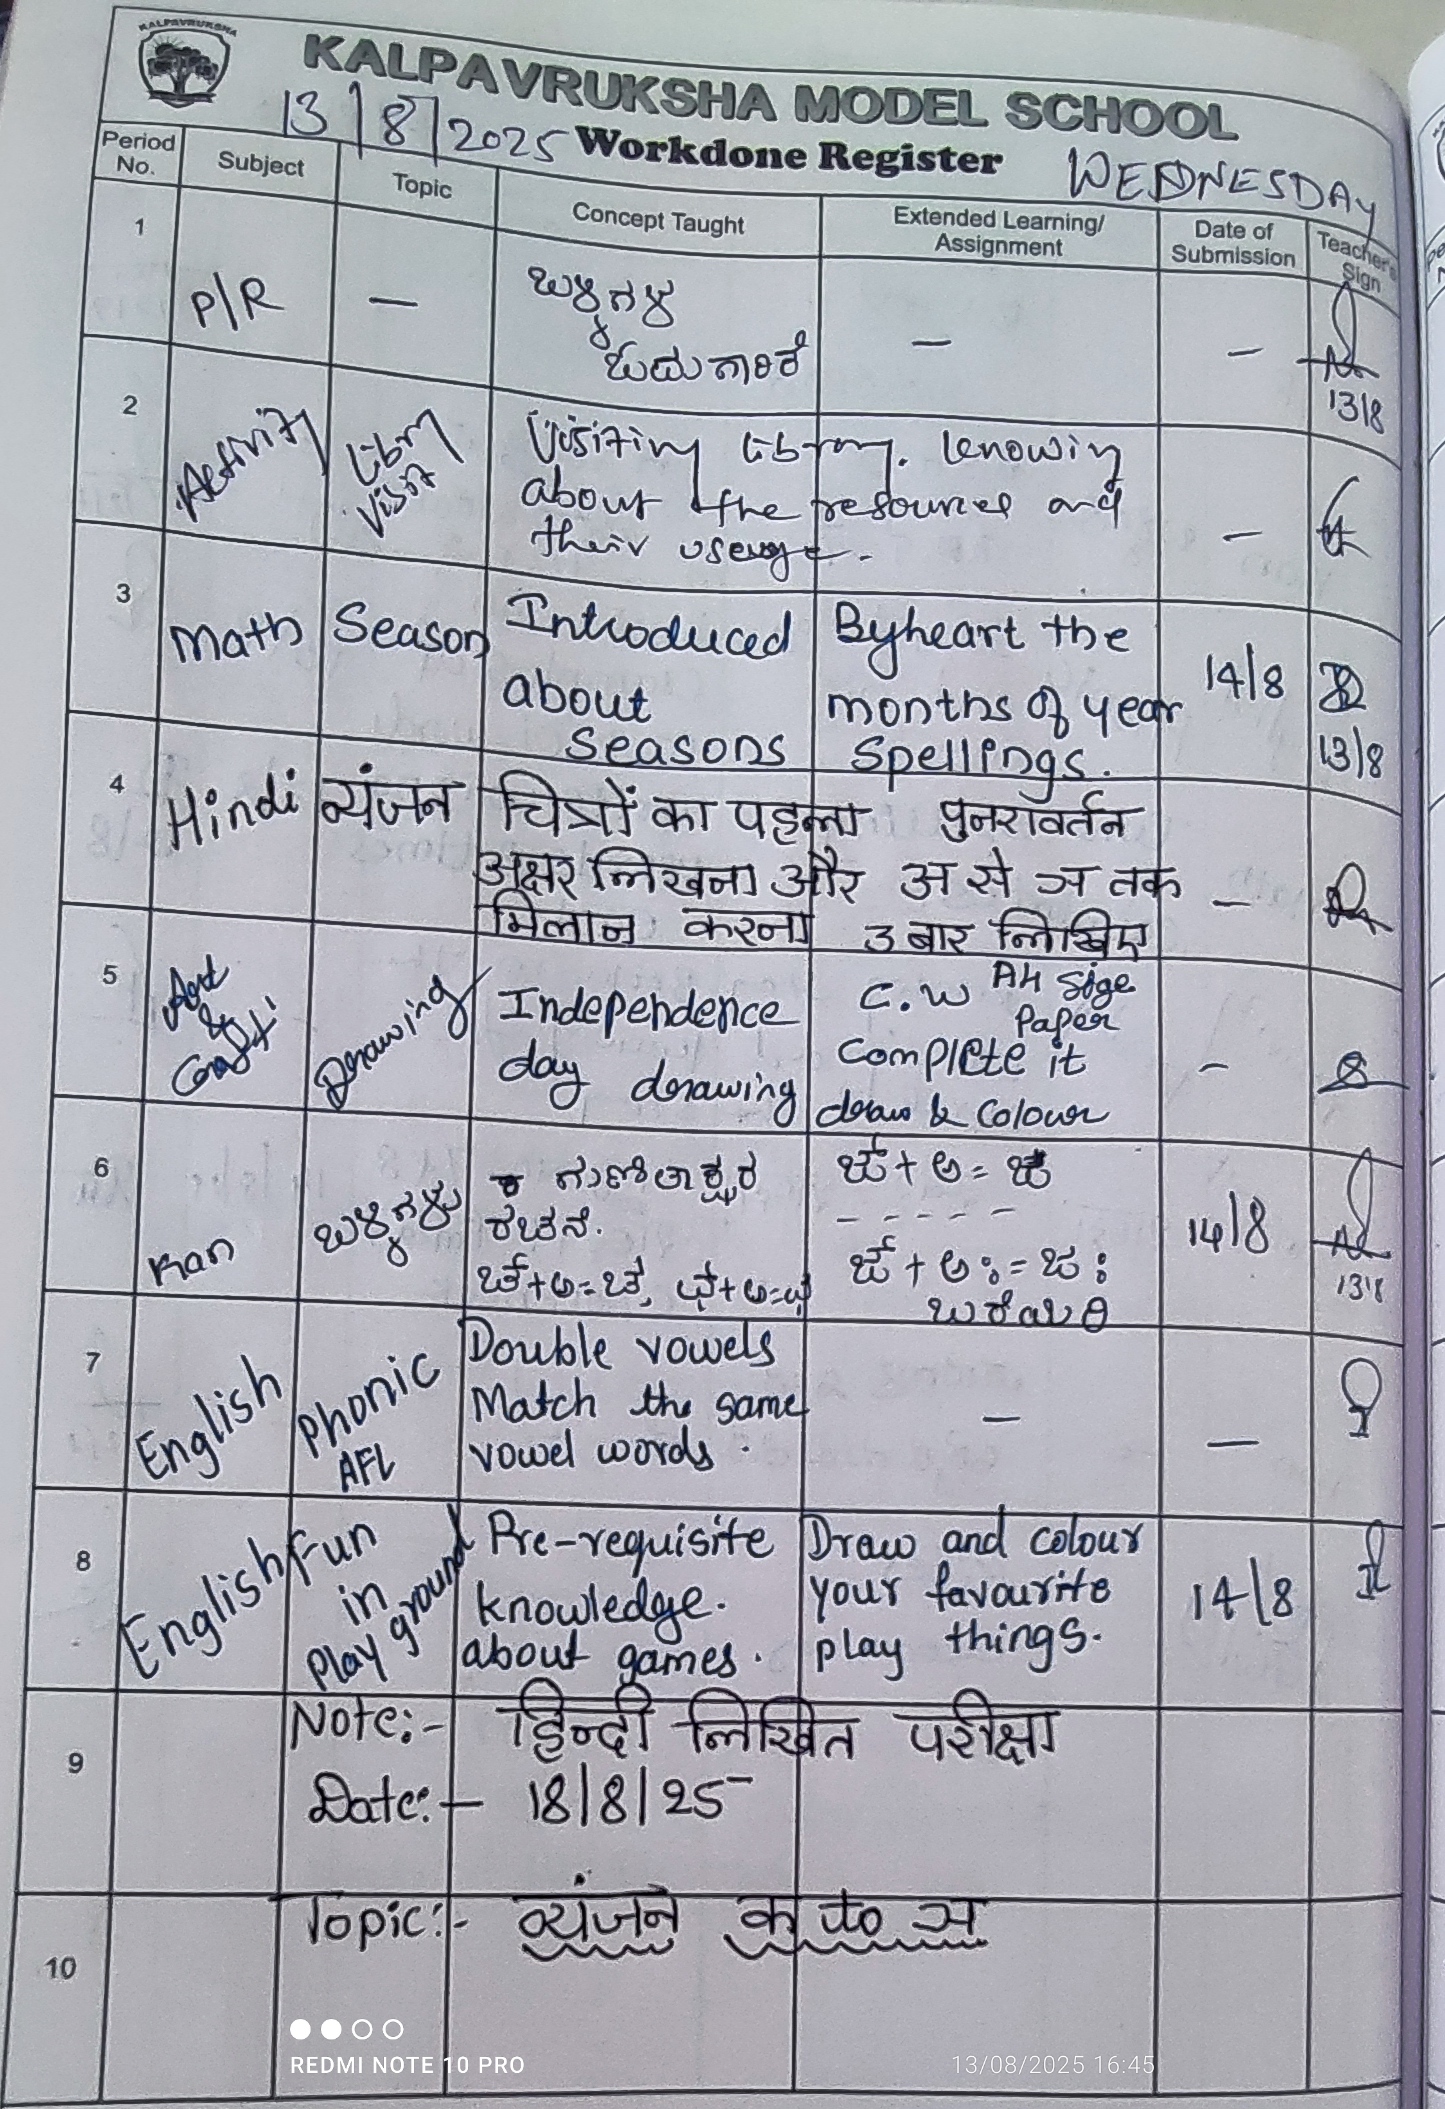 KALPAVRUKSHA
KALPAVRUKSHA MODEL SCHOOL
13/8/2025 Workdone Register WEDNESDAY
Period No. Subject Topic Concept Taught Extended Learning/ Assignment Date of Submission Teacher's Sign
1 P/R — — —
13/8
2 Activity Visiting library. knowing
Visit about the resources and
their –
3 Math Season Introduced Byheart the 14/8
about months of year
seasons Spellings. 13/8
4 Hindi व्यंजन चित्रों का पहला पुनरावर्तन
अक्षर लिखना और अ से ञ तक –
मिलान करना 3 बार लिखिए
5 Art & Craft Drawing Independence C.W A4 Size Paper
day drawing Complete it –
draw & Colour
6 Kan 14/8
- - - - -
13/8
7 English Phonic Double vowels
AFL Match the same — —
vowel words.
8 English Fun Pre-requisite Draw and colour 14/8
in knowledge. your favourite
Play ground about games. play things.
Note:- हिन्दी लिखित परीक्षा
9 Date:- 18/8/25
Topic:- व्यंजन क to ञ
10
REDMI NOTE 10 PRO 13/08/2025 16:45